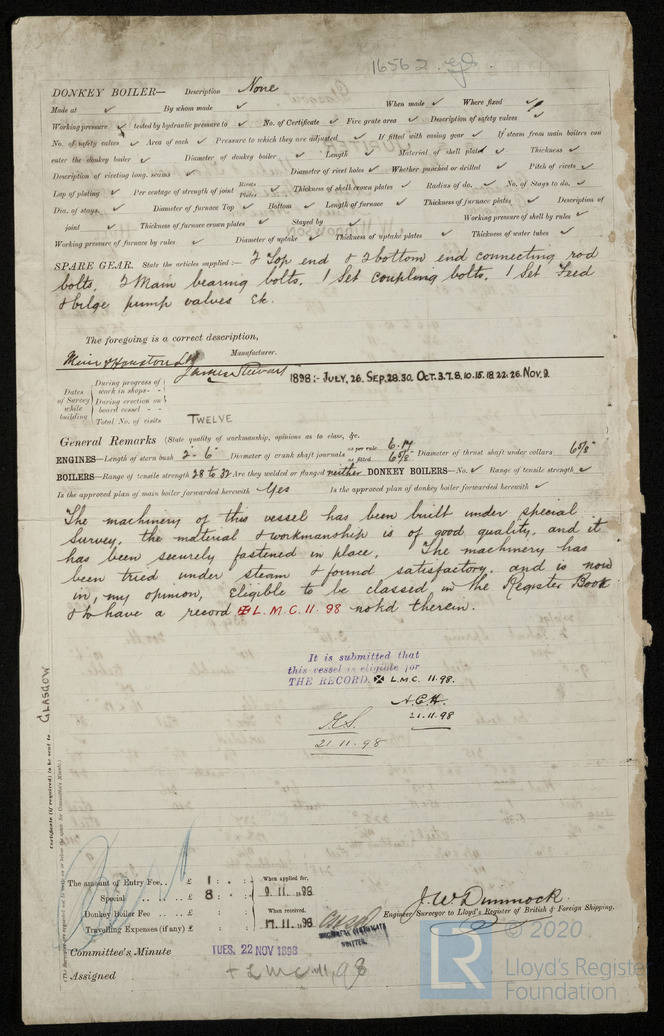 16562 Gls.
DONKEY BOILER— Description None
Made at ✓ By whom made ✓ When made ✓ Where fixed ✓
Working pressure ✓ tested by hydraulic pressure to ✓ No. of Certificate ✓ Fire grate area ✓ Description of safety valves ✓
No. of safety valves ✓ Area of each ✓ Pressure to which they are adjusted ✓ If fitted with easing gear ✓ If steam from main boilers can
enter the donkey boiler ✓ Diameter of donkey boiler ✓ Length ✓ Material of shell plates ✓ Thickness ✓
Description of riveting long. seams ✓ Diameter of rivet holes ✓ Whether punched or drilled ✓ Pitch of rivets ✓
Lap of plating ✓ Per centage of strength of joint Rivets Plates ✓ Thickness of shell crown plates ✓ Radius of do. ✓ No. of Stays to do. ✓
Dia. of stays. ✓ Diameter of furnace Top ✓ Bottom ✓ Length of furnace ✓ Thickness of furnace plates ✓ Description of
joint ✓ Thickness of furnace crown plates ✓ Stayed by ✓ Working pressure of shell by rules ✓
Working pressure of furnace by rules ✓ Diameter of uptake ✓ Thickness of uptake plates ✓ Thickness of water tubes ✓
SPARE GEAR. State the articles supplied:— 2 Top end & 2 bottom end connecting rod
bolts, 2 Main bearing bolts. 1 Set coupling bolts. 1 Set Feed
& bilge pump valves &c.
The foregoing is a correct description,
Muir & Houston Ld Manufacturer.
James Stewart
Dates of Survey while building
During progress of work in shops - - 1898:- JULY, 26. SEP. 28.30. OCT. 3.7.8.10.15.18.22.26. NOV. 9.
During erection on board vessel - - -
Total No. of visits TWELVE
General Remarks (State quality of workmanship, opinions as to class, &c.
ENGINES—Length of stern bush 2'-6" Diameter of crank shaft journals as per rule 6.17 as fitted 6 5/8" Diameter of thrust shaft under collars 6 5/8"
BOILERS—Range of tensile strength 28 to 32 Are they welded or flanged neither DONKEY BOILERS—No. ✓ Range of tensile strength ✓
Is the approved plan of main boiler forwarded herewith Yes Is the approved plan of donkey boiler forwarded herewith ✓
The machinery of this vessel has been built under special
Survey, the material & workmanship is of good quality, and it
has been securely fastened in place. The machinery has
been tried under steam & found satisfactory. and is now
in, my opinion, Eligible to be classed in the Register Book
& to have a record ✠ L.M.C. 11.98 notd therein.
It is submitted that
this vessel is eligible for
THE RECORD. ✠ L.M.C. 11.98.
A.C.H.
21.11.98
21.11.98
GLASGOW
Certificate (if required) to be sent to
The amount of Entry Fee.. £ 1 : . : . When applied for,
Special .. .. .. £ 8 : . : . 9.11.1898
Donkey Boiler Fee .. .. £ : : When received,
Travelling Expenses (if any) £ : : 17.11.1898
J.W. Dimmock.
Engineer Surveyor to Lloyd's Register of British & Foreign Shipping.
Committee's Minute TUES. 22 NOV 1898
CERTIFICATE
WRITTEN.
Assigned + L M C 11, 98
© 2020
LR
Lloyd's Register
Foundation